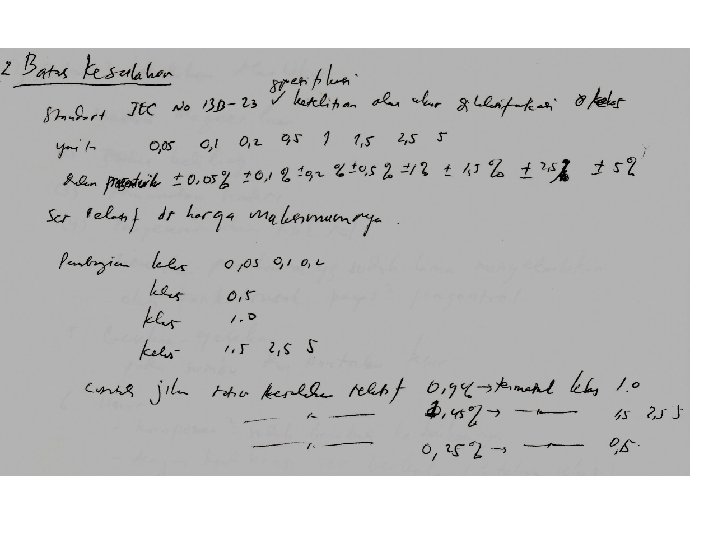 2 Batas Kesalahan
spesifikasi
Standart IEC No 13B-23 ✓ ketelitian alat ukur diklasifikasi 8 kelas
yaitu 0,05 0,1 0,2 0,5 1 1,5 2,5 5
dalam ± 0,05% ± 0,1 % ± 0,2 % ± 0,5 % ± 1% ± 1,5 % ± 2,5 % ± 5 %
relatif dr harga maksimumnya .
Pembagian kelas 0,05 0,1 0,2
kelas 0,5
klas 1.0
kelas 1.5 2,5 5
contoh jika kesalahan relatif 0,9% → termasuk kelas 1.0
— " — ,45% → — " — 1,5 2,5 5
— " — 0,25% → — " — 0,5.